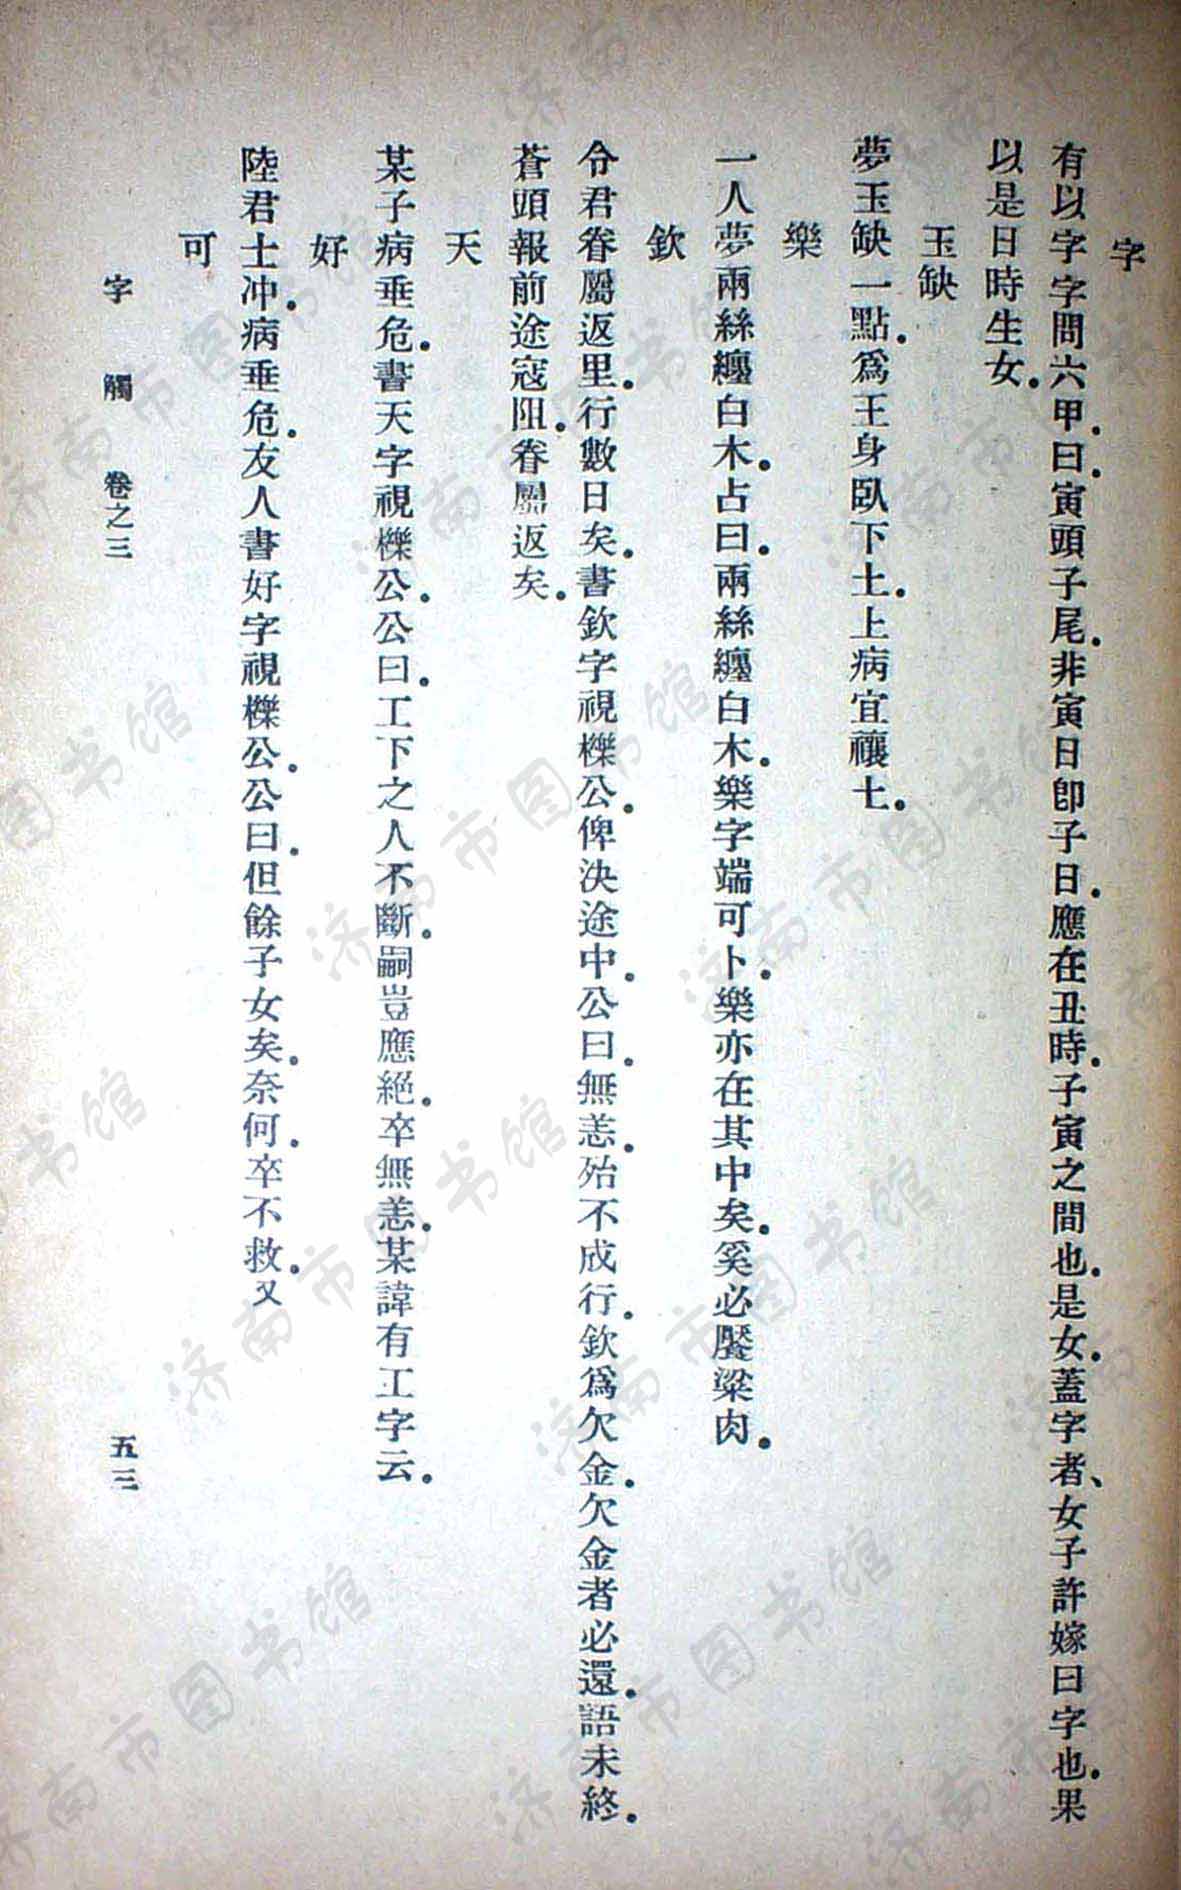 字
有以字字問六甲。曰。寅頭子尾。非寅日卽子日。應在丑時。子寅之間也。是女。蓋字者、女子許嫁曰字也。果
以是日時生女。
玉缺
夢玉缺一點。爲王身臥下土。上病宜禳土。
樂
一人夢兩絲纏白木。占曰。兩絲纏白木。樂字端可卜。樂亦在其中矣。奚必饜粱肉。
欽
令君眷屬返里。行數日矣。書欽字視櫟公。俾決途中。公曰。無恙。殆不成行。欽爲欠金。欠金者必還。語未終。
蒼頭報前途寇阻。眷屬返矣。
天
某子病垂危。書天字視櫟公。公曰。工下之人不斷。嗣豈應絕。卒無恙。某諱有工字云。
好
陸君士冲。病垂危。友人書好字視櫟公。公曰。但餘子女矣。奈何。卒不救。又
可
字觸 卷之三 五三
济南市图书馆